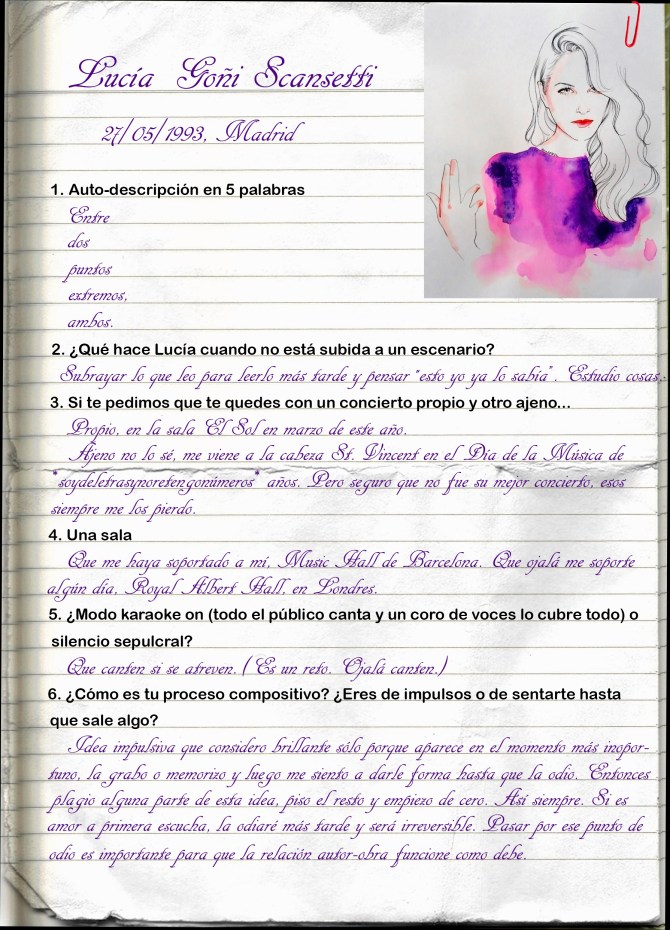 Lucía Goñi Scansetti
27/05/1993, Madrid
1. Auto-descripción en 5 palabras
Entre
dos
puntos
extremos,
ambos.
2. ¿Qué hace Lucía cuando no está subida a un escenario?
Subrayar lo que leo para leerlo más tarde y pensar "esto yo ya lo sabía". Estudio cosas.
3. Si te pedimos que te quedes con un concierto propio y otro ajeno...
Propio, en la sala El Sol en marzo de este año.
Ajeno no lo sé, me viene a la cabeza St. Vincent en el Día de la Música de
*soydeletrasynoretengonúmeros* años. Pero seguro que no fue su mejor concierto, esos
siempre me los pierdo.
4. Una sala
Que me haya soportado a mí, Music Hall de Barcelona. Que ojalá me soporte
algún día, Royal Albert Hall, en Londres.
5. ¿Modo karaoke on (todo el público canta y un coro de voces lo cubre todo) o
silencio sepulcral?
Que canten si se atreven. (Es un reto. Ojalá canten.)
6. ¿Cómo es tu proceso compositivo? ¿Eres de impulsos o de sentarte hasta
que sale algo?
Idea impulsiva que considero brillante sólo porque aparece en el momento más inopor-
tuno, la grabo o memorizo y luego me siento a darle forma hasta que la odio. Entonces
plagio alguna parte de esta idea, piso el resto y empiezo de cero. Así siempre. Si es
amor a primera escucha, la odiaré más tarde y será irreversible. Pasar por ese punto de
odio es importante para que la relación autor-obra funcione como debe.